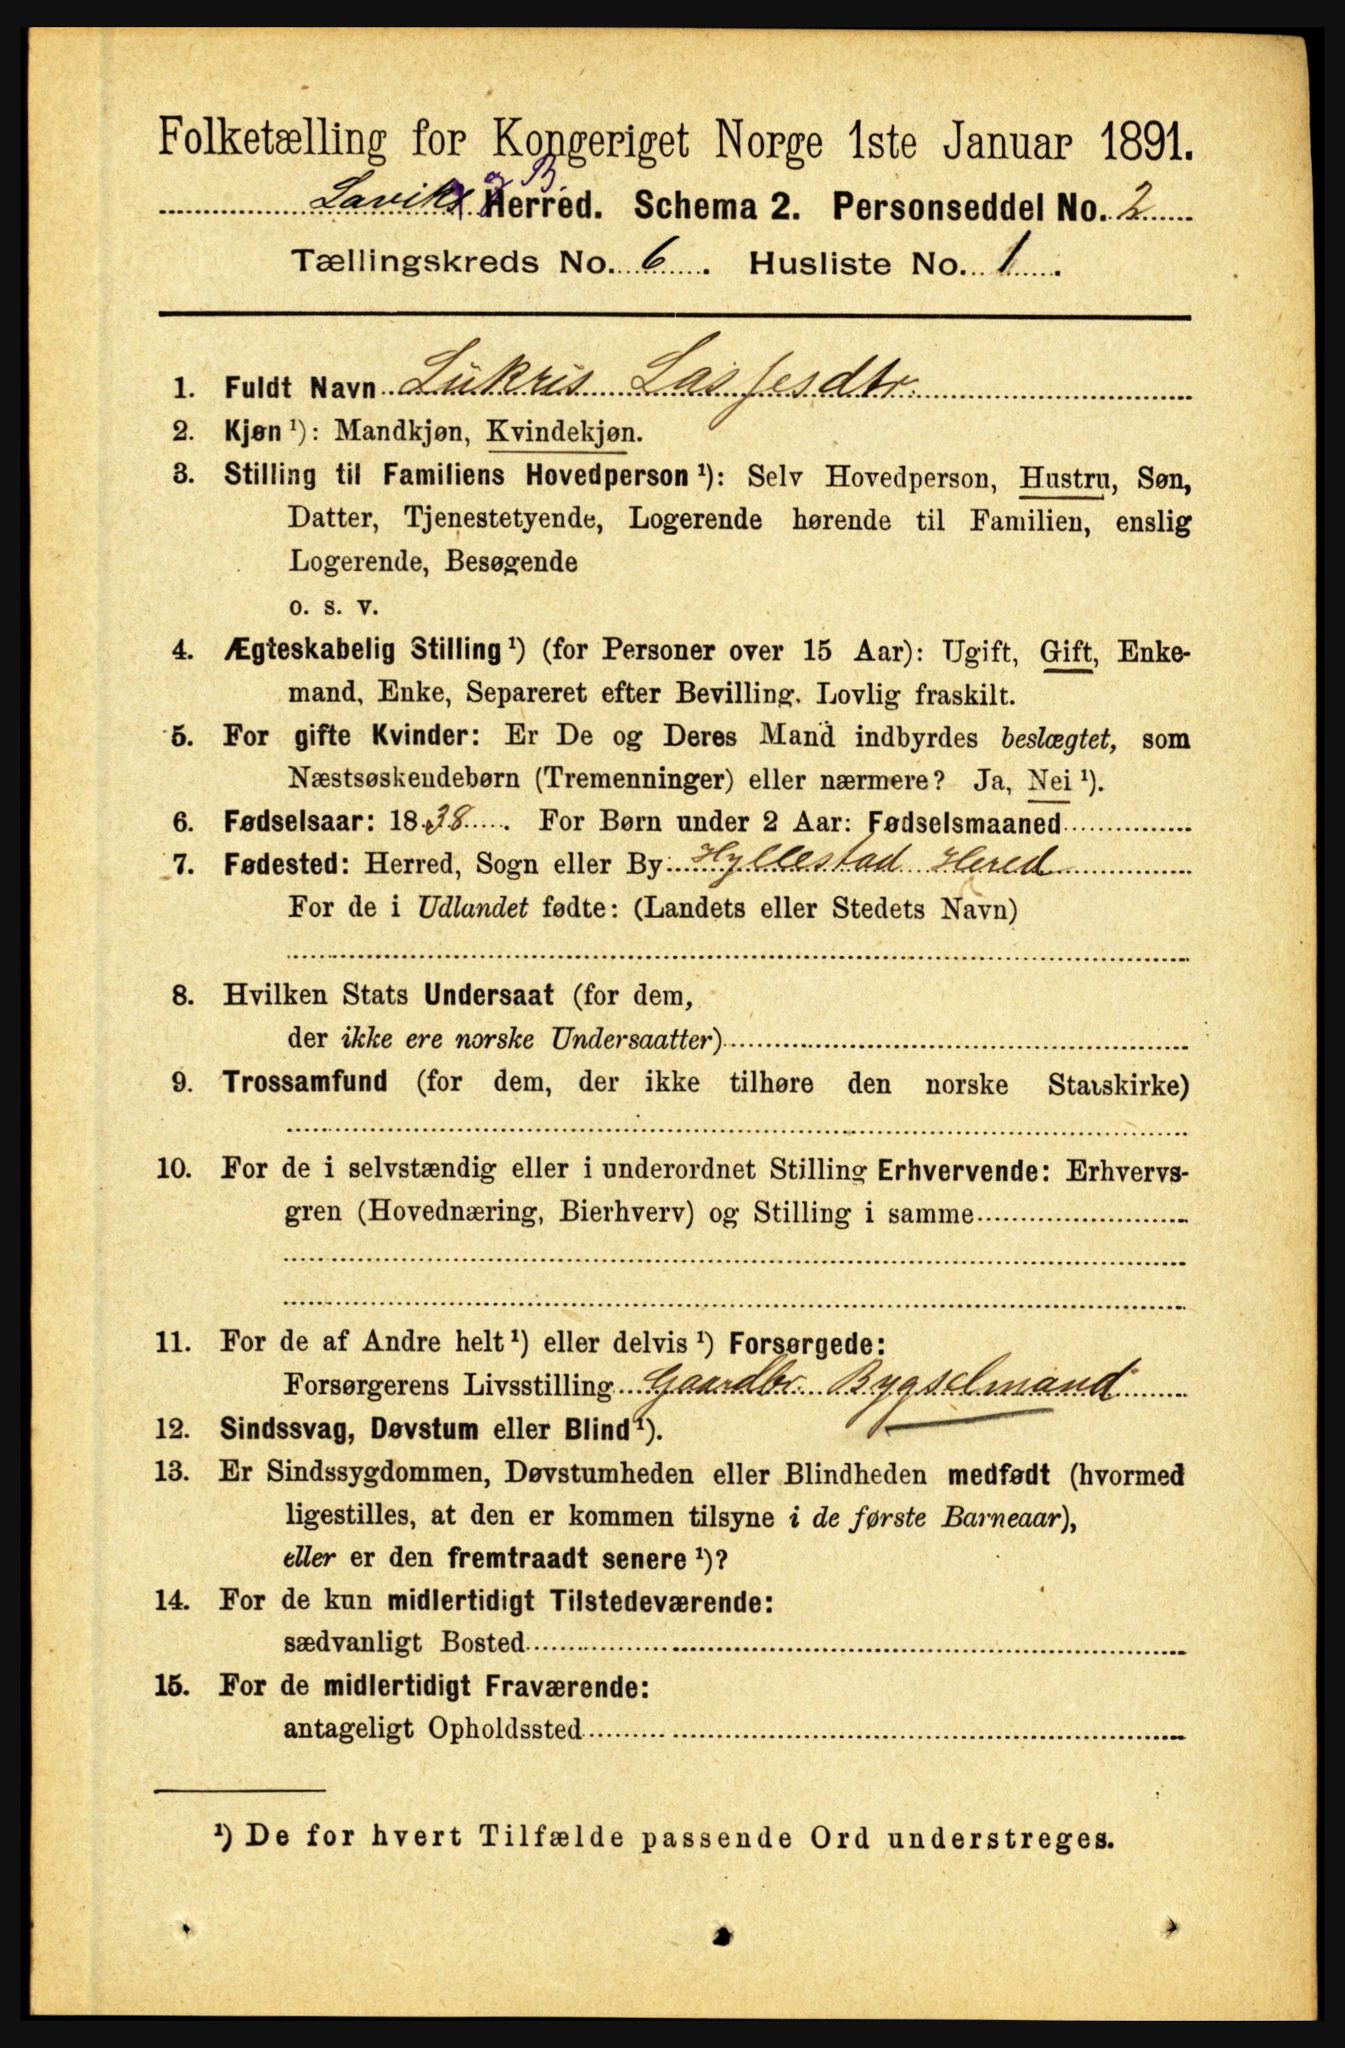 Folketælling for Kongeriget Norge 1ste Januar 1891.
og B.
Laviks Herred. Schema 2. Personseddel No. 2
Tællingskreds No. 6. Husliste No. 1.
1. Fuldt Navn Lukris Lassesdtr.
2. Kjøn ¹): Mandkjøn, Kvindekjøn.
3. Stilling til Familiens Hovedperson ¹): Selv Hovedperson, Hustru, Søn,
Datter, Tjenestetyende, Logerende hørende til Familien, enslig
Logerende, Besøgende
o. s. v.
4. Ægteskabelig Stilling ¹) (for Personer over 15 Aar): Ugift, Gift, Enke-
mand, Enke, Separeret efter Bevilling. Lovlig fraskilt.
5. For gifte Kvinder: Er De og Deres Mand indbyrdes beslægtet, som
Næstsøskendebørn (Tremenninger) eller nærmere? Ja, Nei ¹).
6. Fødselsaar: 1838. For Børn under 2 Aar: Fødselsmaaned
7. Fødested: Herred, Sogn eller By Hyllestad Hered
For de i Udlandet fødte: (Landets eller Stedets Navn)
8. Hvilken Stats Undersaat (for dem,
der ikke ere norske Undersaatter)
9. Trossamfund (for dem, der ikke tilhøre den norske Statskirke)
10. For de i selvstændig eller i underordnet Stilling Erhvervende: Erhvervs-
gren (Hovednæring, Bierhverv) og Stilling i samme
11. For de af Andre helt ¹) eller delvis ¹) Forsørgede:
Forsørgerens Livsstilling Gaardbr. Bygselmand
12. Sindssvag, Døvstum eller Blind ¹).
13. Er Sindssygdommen, Døvstumheden eller Blindheden medfødt (hvormed
ligestilles, at den er kommen tilsyne i de første Barneaar),
eller er den fremtraadt senere ¹)?
14. For de kun midlertidigt Tilstedeværende:
sædvanligt Bosted
15. For de midlertidigt Fraværende:
antageligt Opholdssted
¹) De for hvert Tilfælde passende Ord understreges.